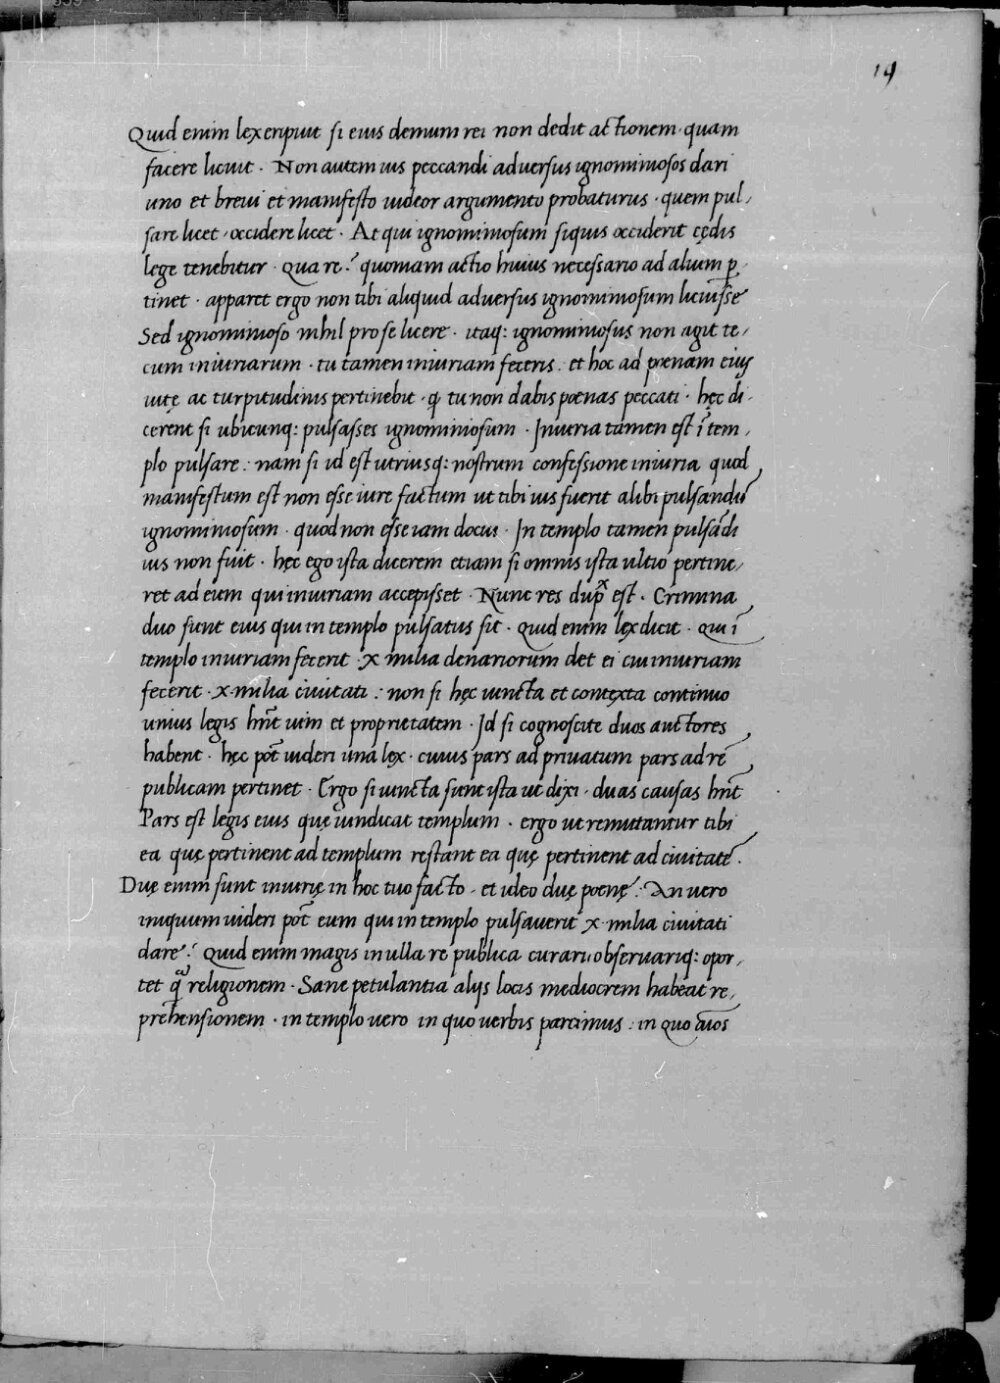 19
Quid enim lex eripuit si eius demum rei non dedit actionem · quam
facere licuit · Non autem ius peccandi adversus ignominiosos dari
uno et brevi et manifesto videor argumento probaturus · quem pul,
sare licet · occidere licet · At qui ignominiosum siquis occiderit cędis
lege tenebitur · Qua re? quoniam actio huius necessario ad alium p̲
tinet · apparet ergo non tibi aliquid adversus ignominiosum licuisse
Sed ignominioso nihil pro se licere · itaq: ignominiosus non agit te,
cum iniuriarum · tu tamen iniuriam feceris. et hoc ad poenam eius
uitę ac turpitudinis pertinebit · ꝙ tu non dabis poenas peccati · hęc di,
cerent si ubicunq: pulsasses ignominiosum · Iniuria tamen est ī tem,
plo pulsare : nam si id est utriusq: nostrum confessione iniuria quod
manifestum est non esse iure factum ut tibi ius fuerit alibi pulsandū
ignominiosum · quod non esse iam docui · In templo tamen pulsādi
ius non fuit · hęc ego ista dicerem etiam si omnis ista ultio pertine,
ret ad eum qui iniuriam accepisset · Nunc res dupˣ est · Crimina
duo sunt eius qui in templo pulsatus sit · Quid enim lex dicit · Qui ī
templo iniuriam fecerit · x milia denariorum det ei cui iniuriam
fecerit · x · milia ciuitati : non si hęc iuncta et contexta continuo
unius legis hn̄t uim et proprietatem · Id si cognoscite duos auctores
habent · hęc pōt uideri una lex · cuius pars ad priuatum pars ad rē
publicam pertinet · Ergo si iuncta sunt ista ut dixi · duas causas hn̄t
Pars est legis eius quę uindicat templum · ergo ut remittantur tibi
ea quę pertinent ad templum restant ea quę pertinent ad ciuitatē ·
Duę enim sunt iniurię in hoc tuo facto · et ideo duę poenę : An uero
iniquum uideri pōt eum qui in templo pulsauerit x · milia ciuitati
dare? Quid enim magis in ulla re publica curari obseruariq: opor,
tet ꝙ religionem · Sane petulantia alijs locis mediocrem habeat re,
prehensionem · in templo uero in quo uerbis parcimus : in quo